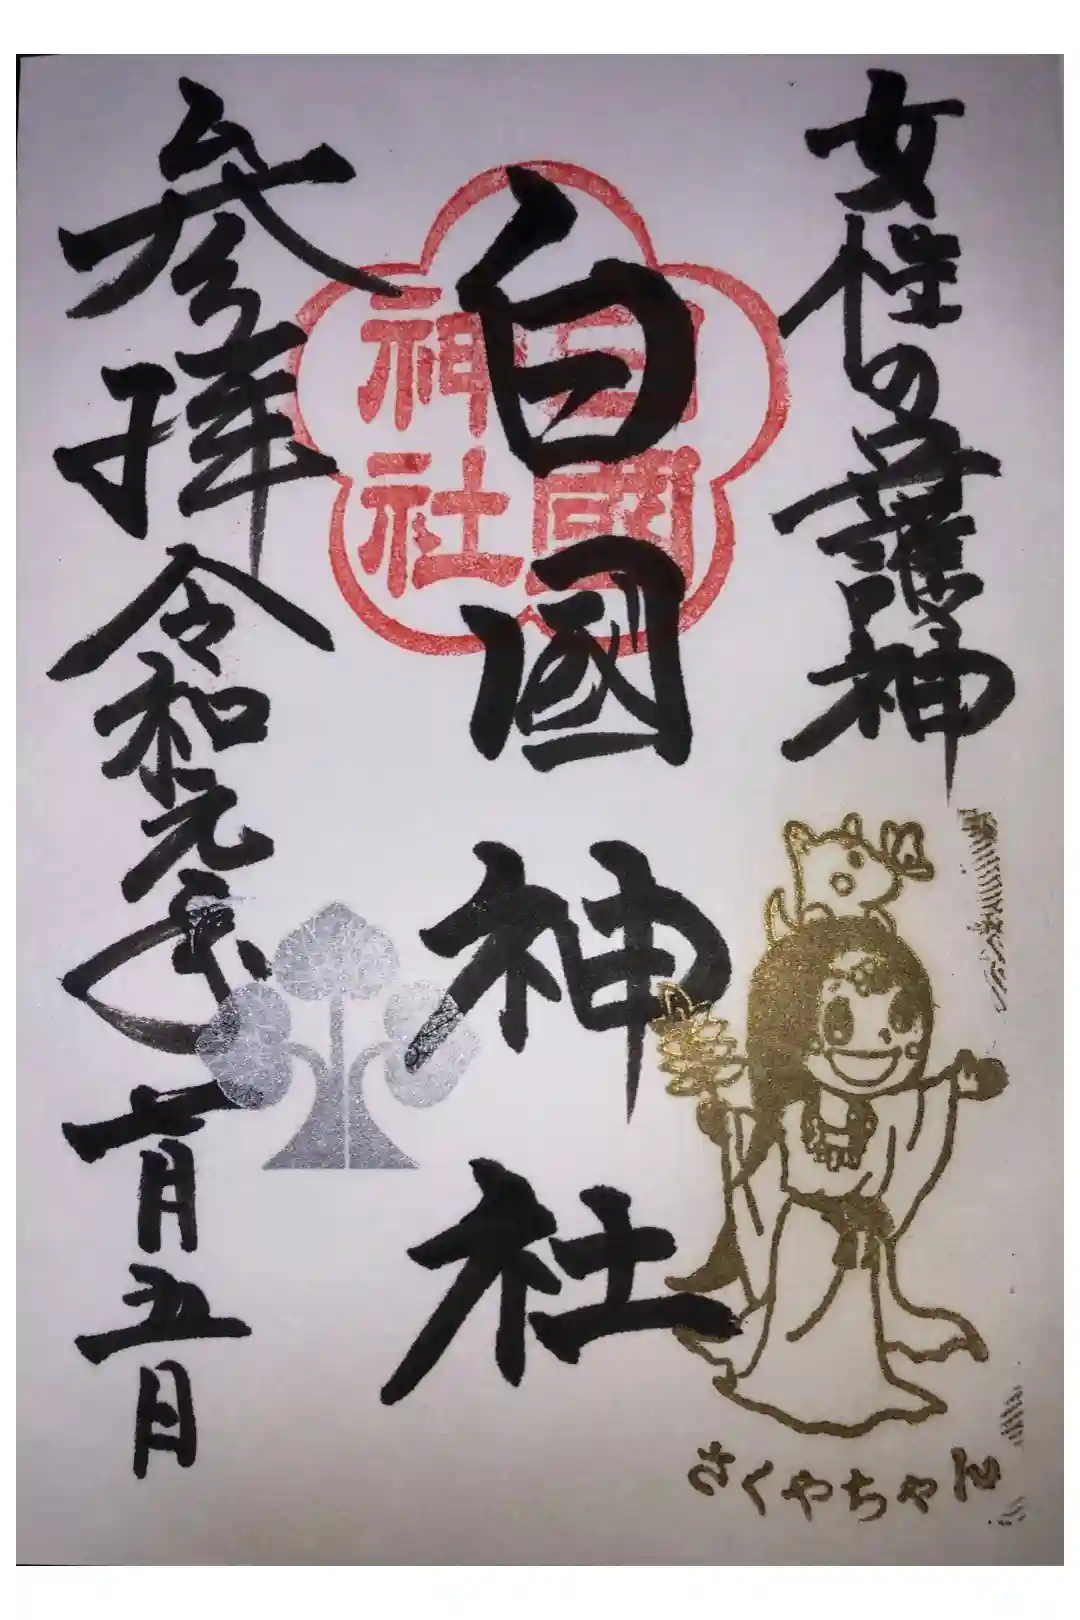 女性の守護神
白國神社
白國
神社
参拝 令和元年 月五日
さくやちゃん